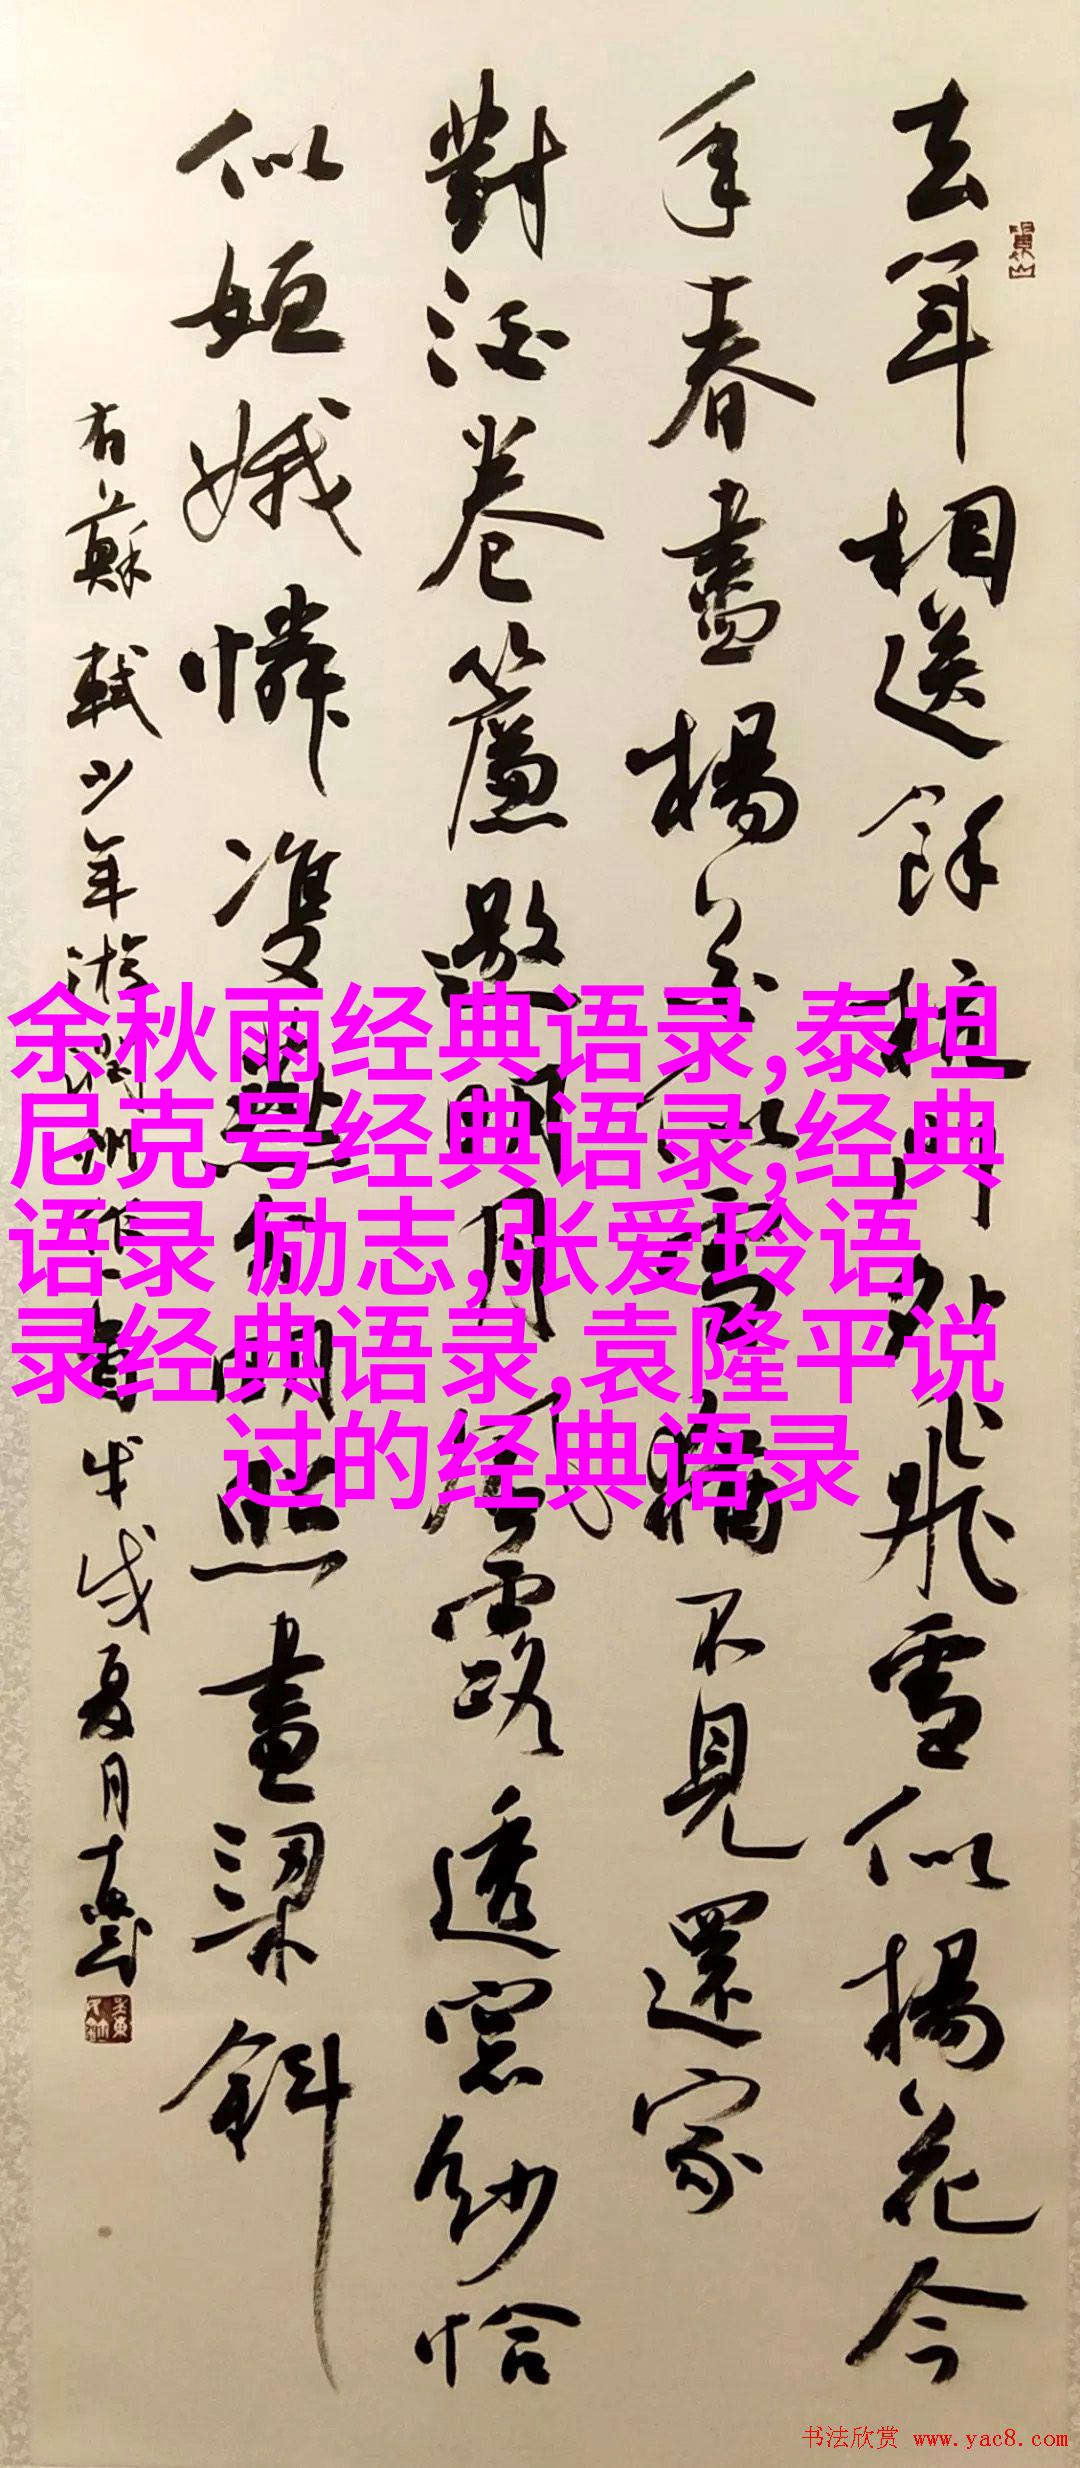 去年相送餘杭門外飛雪似楊花今
年春盡楊花似雪猶不見還家
對酒卷簾邀明月風露透窗紗恰
似姮娥憐雙燕分明照畫梁斜
右蘇軾少年游潤州作 戌夏月
余秋雨经典语录,泰坦
尼克号经典语录,经典
语录 励志,张爱玲语
录经典语录,袁隆平说
过的经典语录
书法欣赏 www.yac8.com